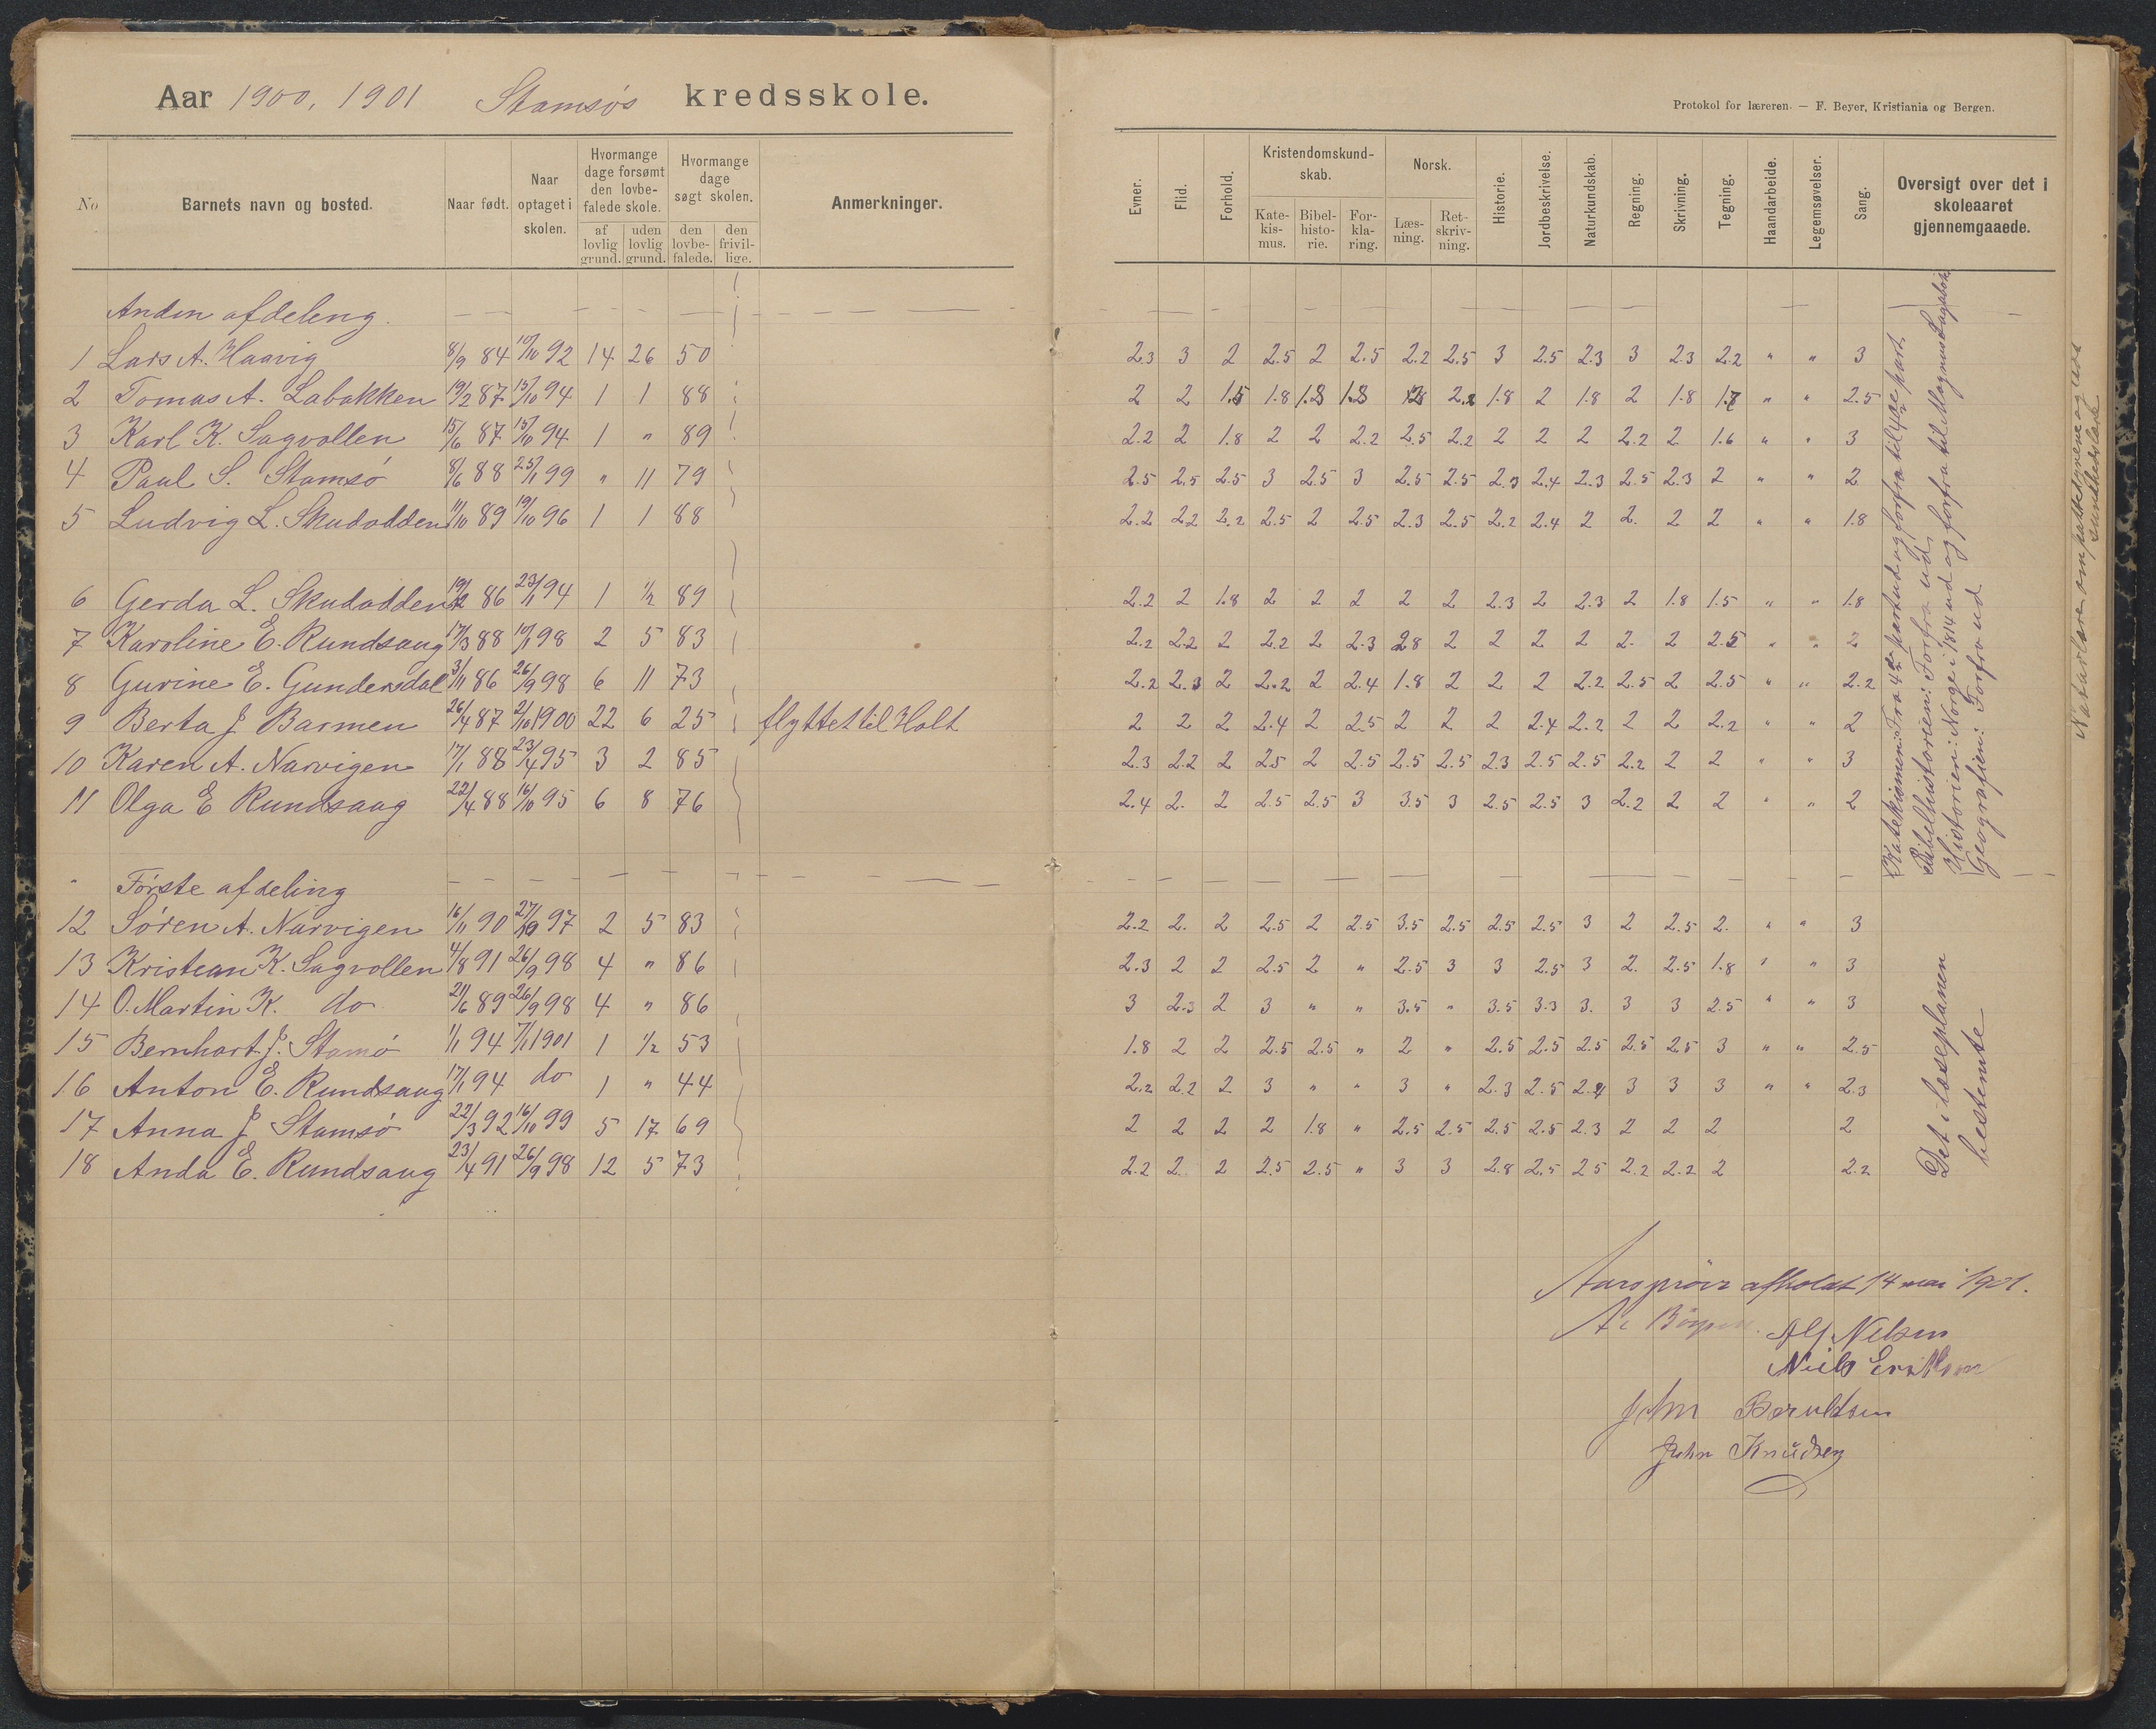 Aar 1900, 1901 Stamsøs kredsskole.
No
Barnets navn og bosted.
Naar født.
Naar optaget i skolen.
Hvormange dage forsømt den lovbefalede skole.
af lovlig grund.
uden lovlig grund.
Hvormange dage søgt skolen.
den lovbefalede.
den frivillige.
Anmerkninger.
Anden afdeleng.
1 Lars A. Haavig 8/9 84 10/10 92 14 26 50
2 Tomas A. Labakken 19/2 87 15/10 94 1 1 88
3 Karl K. Sagvollen 15/6 87 15/10 94 1 " 89
4 Paul S. Stamsø 8/6 88 25/1 99 " 11 79
5 Ludvig L. Skudodden 11/10 89 19/10 96 1 1 88
6 Gerda L. Skudodden 19/2 86 23/11 94 1 1/2 89
7 Karoline E. Rundsaug 17/3 88 10/1 98 2 5 83
8 Gurine E. Gundersdal 3/11 86 26/9 98 6 11 73
9 Berta J Barmen 26/4 87 2/10 1900 22 6 25 flyttet til Holt
10 Karen A. Narvigen 17/1 88 23/4 95 3 2 85
11 Olga E Rundsaag 22/4 88 16/10 95 6 8 76
Første afdeling
12 Søren A. Narvigen 16/11 90 27/10 97 2 5 83
13 Kristean K. Sagvollen 4/8 91 26/9 98 4 " 86
14 O. Martin K. do 21/6 89 26/9 98 4 " 86
15 Bernhart J. Stamø 1/1 94 7/1 1901 1 1/2 53
16 Anton E. Rundsaug 17/1 94 do 1 " 44
17 Anna J Stamsø 22/3 92 16/10 99 5 17 69
18 Anda E. Rundsaug 23/4 91 26/9 98 12 5 73
Protokol for læreren. — F. Beyer, Kristiania og Bergen.
Evner.
Flid.
Forhold.
Kristendomskundskab.
Katekismus.
Bibelhistorie.
Forklaring.
Norsk.
Læsning.
Retskrivning.
Historie.
Jordbeskrivelse.
Naturkundskab.
Regning.
Skrivning.
Tegning.
Haandarbeide.
Legemsøvelser.
Sang.
Oversigt over det i skoleaaret gjennemgaaede.
2.3 3 2 2.5 2 2.5 2.2 2.5 3 2.5 2.3 3 2.3 2.2 " " 3
2 2 1.5 1.8 1.8 1.8 2.2 1.8 2 1.8 2 1.8 1.7 " " 2.5
2.2 2 1.8 2 2 2.2 2.5 2.2 2 2 2 2.2 2 1.6 " " 3
2.5 2.5 2.5 3 2.5 3 2.5 2.5 2.3 2.4 2.3 2.5 2.3 2 " " 2
2.2 2.2 2.2 2.5 2 2.5 2.3 2.5 2.2 2.4 2 2. 2 2 " " 1.8
2.2 2 1.8 2 2 2 2 2 2.3 2 2.3 2 1.8 1.5 " " 1.8
2.2 2.2 2 2.2 2 2.3 2.8 2 2 2 2 2. 2 2.5 " " 2
2.2 2.3 2 2.2 2 2.4 1.8 2 2 2 2.2 2.5 2 2.5 " " 2.2
2 2 2 2.4 2 2.5 2 2 2 2.4 2.2 2 2 2.2 " " 2
2.3 2.2 2 2.5 2 2.5 2.5 2.5 2.3 2.5 2.5 2.2 2 2 " " 3
2.4 2. 2 2.5 2.5 3 3.5 3 2.5 2.5 3 2.2 2 2 " " 2
2.2 2. 2 2.5 2 2.5 3.5 2.5 2.5 2.5 3 2 2.5 2. " " 3
2.3 2 2 2.5 2 " 2.5 3 3 2.5 3 2. 2.5 1.8 " " 3
3 2.3 2 3 " " 3.5 " 3.5 3.3 3. 3 3 2.5 " " 3
1.8 2 2 2.5 2.5 " 2 " 2.5 2.5 2.5 2.5 2.5 3 " " 2.5
2.2 2.2 2 3 " " 3 " 2.3 2.5 2.4 3 3 3 " " 2.3
2 2 2 2 1.8 " 2.5 2.5 2.5 2.5 2.3 2 2 2 2
2.2 2. 2 2.5 2.5 " 3 3 2.8 2.5 2.5 2.2 2.2 2 2.2
Katekismen: Fra 4de part ud og forfra til 4de part.
Bibelhistorien: Forfra ud.
Historien: Norge i 1814 ud og forfra til Magnus Lagabøte
Geografien: Forfra ud
Naturlære om pattedyrene og
sundhedslære
Det i læseplanen
bestemte
Aarsprøve afholdt 14 mai 1901.
Alf Nelsen
Niels Eriksen
John Beruldsen
John Knudsen